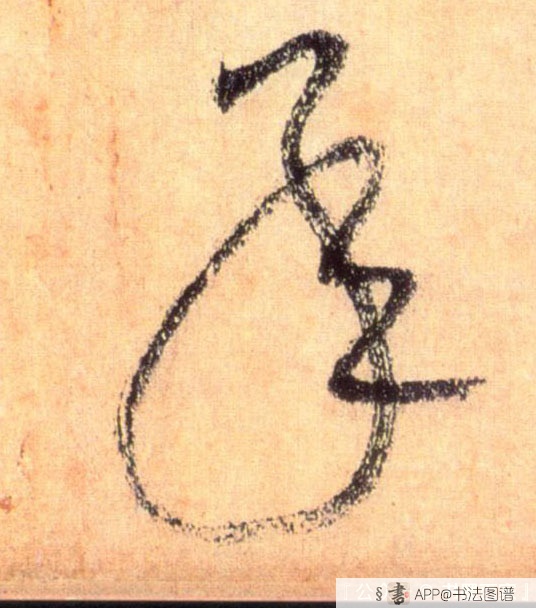 承
§ 書 APP@书法图谱